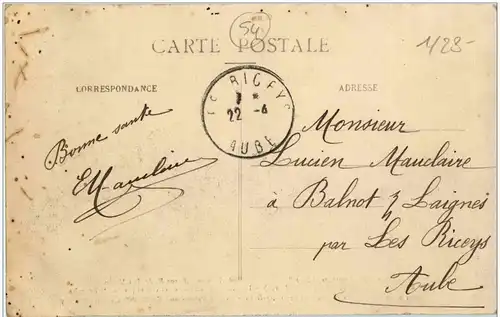 54
1/23-
CARTE POSTALE
CORRESPONDANCE
ADRESSE
RICEYS
22 - 6
AUBE
Bonne santé
EMauclaire
Monsieur
Lucien Mauclaire
à Balnot s/ Laignes
par Les Riceys
Aube